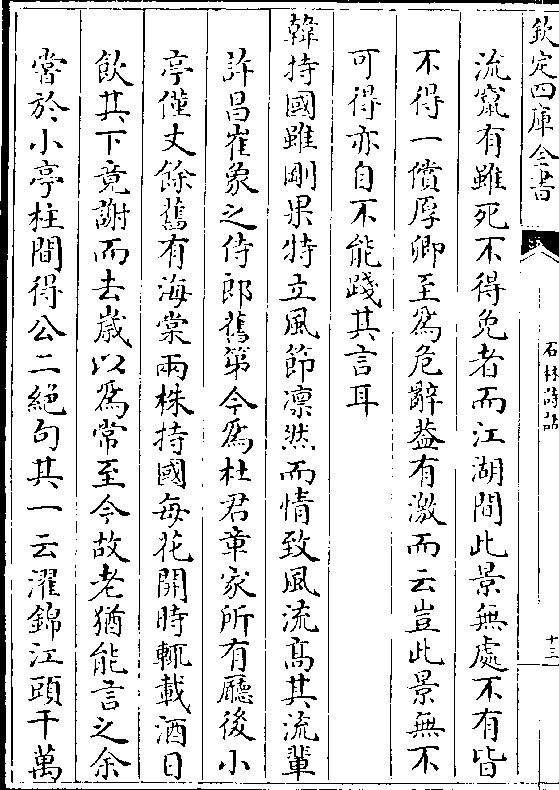 欽定四庫全書
石林詩話
十三
流竄有雖死不得免者而江湖間此景無處不有皆
不得一償厚卿至爲危辭葢有激而云豈此景無不
可得亦自不能踐其言耳
韓持國雖剛果特立風節凛然而情致風流髙其流輩
許昌崔象之侍郎舊第今爲杜君章家所有㕔後小
亭僅丈餘舊有海棠兩株持國每花開時輒載酒日
飲其下竟謝而去歲以爲常至今故老猶能言之余
嘗於小亭柱間得公二絶句其一云濯錦江頭千萬